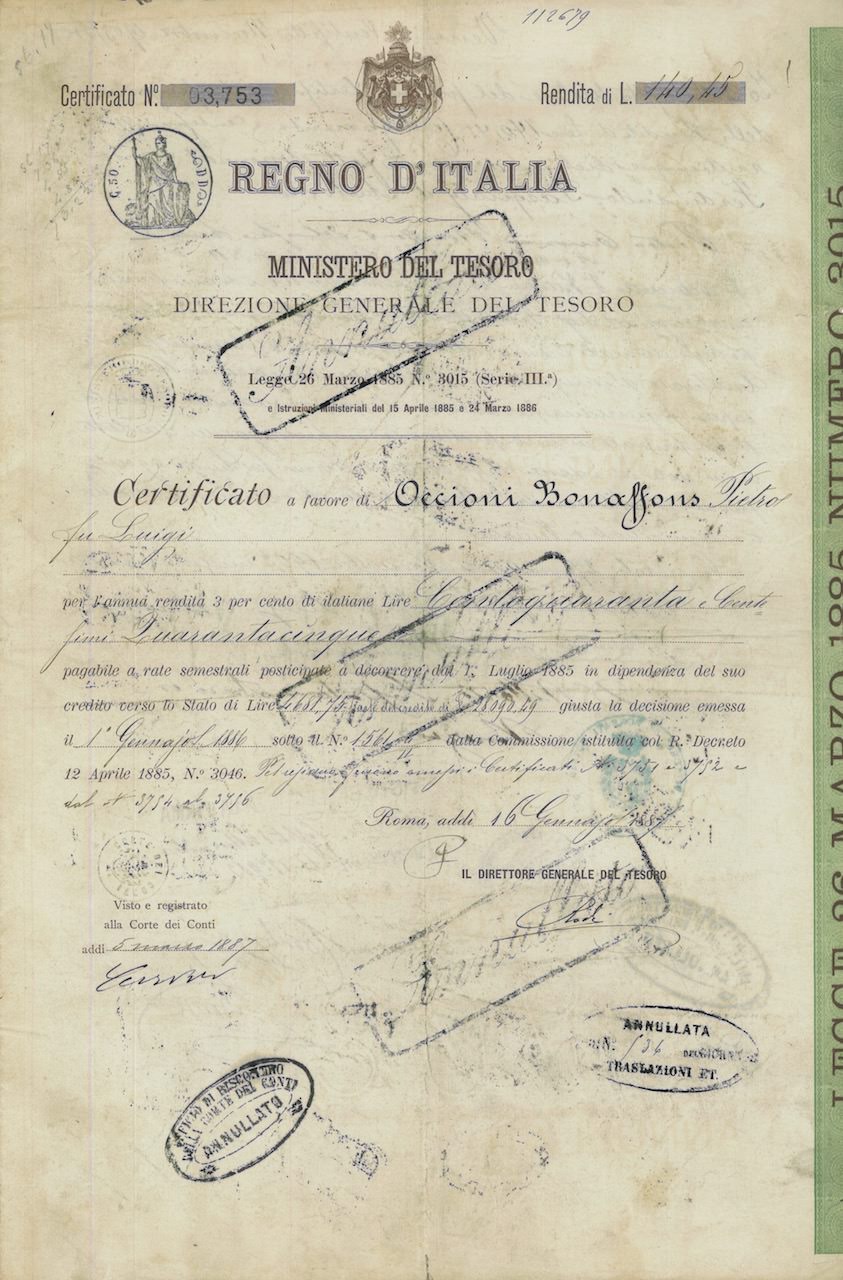 112679
Certificato N.º 03,753
Rendita di L. 140,45
G.50
REGNO D'ITALIA
MINISTERO DEL TESORO
DIREZIONE GENERALE DEL TESORO
Legge 26 Marzo 1885 N.º 3015 (Serie III.ª)
e Istruzioni Ministeriali del 15 Aprile 1885 e 24 Marzo 1886
Certificato a favore di Occioni Bonaffons Pietro
fu Luigi
per l'annua rendita 3 per cento di italiane Lire Centoquaranta e Cente
simi Quarantacinque
pagabile a rate semestrali posticipate a decorrere dal 1º Luglio 1885 in dipendenza del suo
credito verso lo Stato di Lire 4681,75 del credito di 28090,49 giusta la decisione emessa
il 1º Gennajo 1886 sotto il N.º dalla Commissione istituita col R.º Decreto
12 Aprile 1885, N.º 3046. Certificati N. 3751 e 3752 e
dal N 3754 al 3756
Roma, addì 16 Gennajo 1887
IL DIRETTORE GENERALE DEL TESORO
Visto e registrato
alla Corte dei Conti
addì 5 marzo 1887
ANNULLATA
N. 536 DEL GIORN.
TRASLAZIONI ET.
UFFICIO DI RISCONTRO
DELLA CORTE DEI CONTI
ANNULLATO
LEGGE 26 MARZO 1885 NUMERO 3015